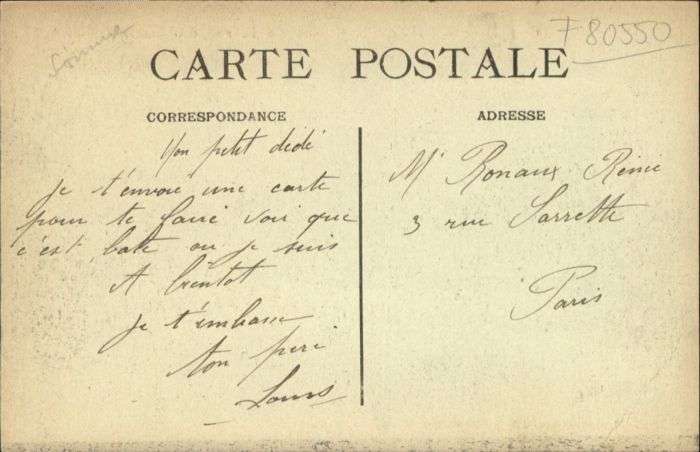 F80550
CARTE POSTALE
CORRESPONDANCE
ADRESSE
Mon petit dédé
Je t'envoie une carte
pour te faire voir que
c'est bate ou je suis
A bientot
Je t'embasse
ton pere
Louis
Mr Ronaux René
3 rue Sarrette
Paris